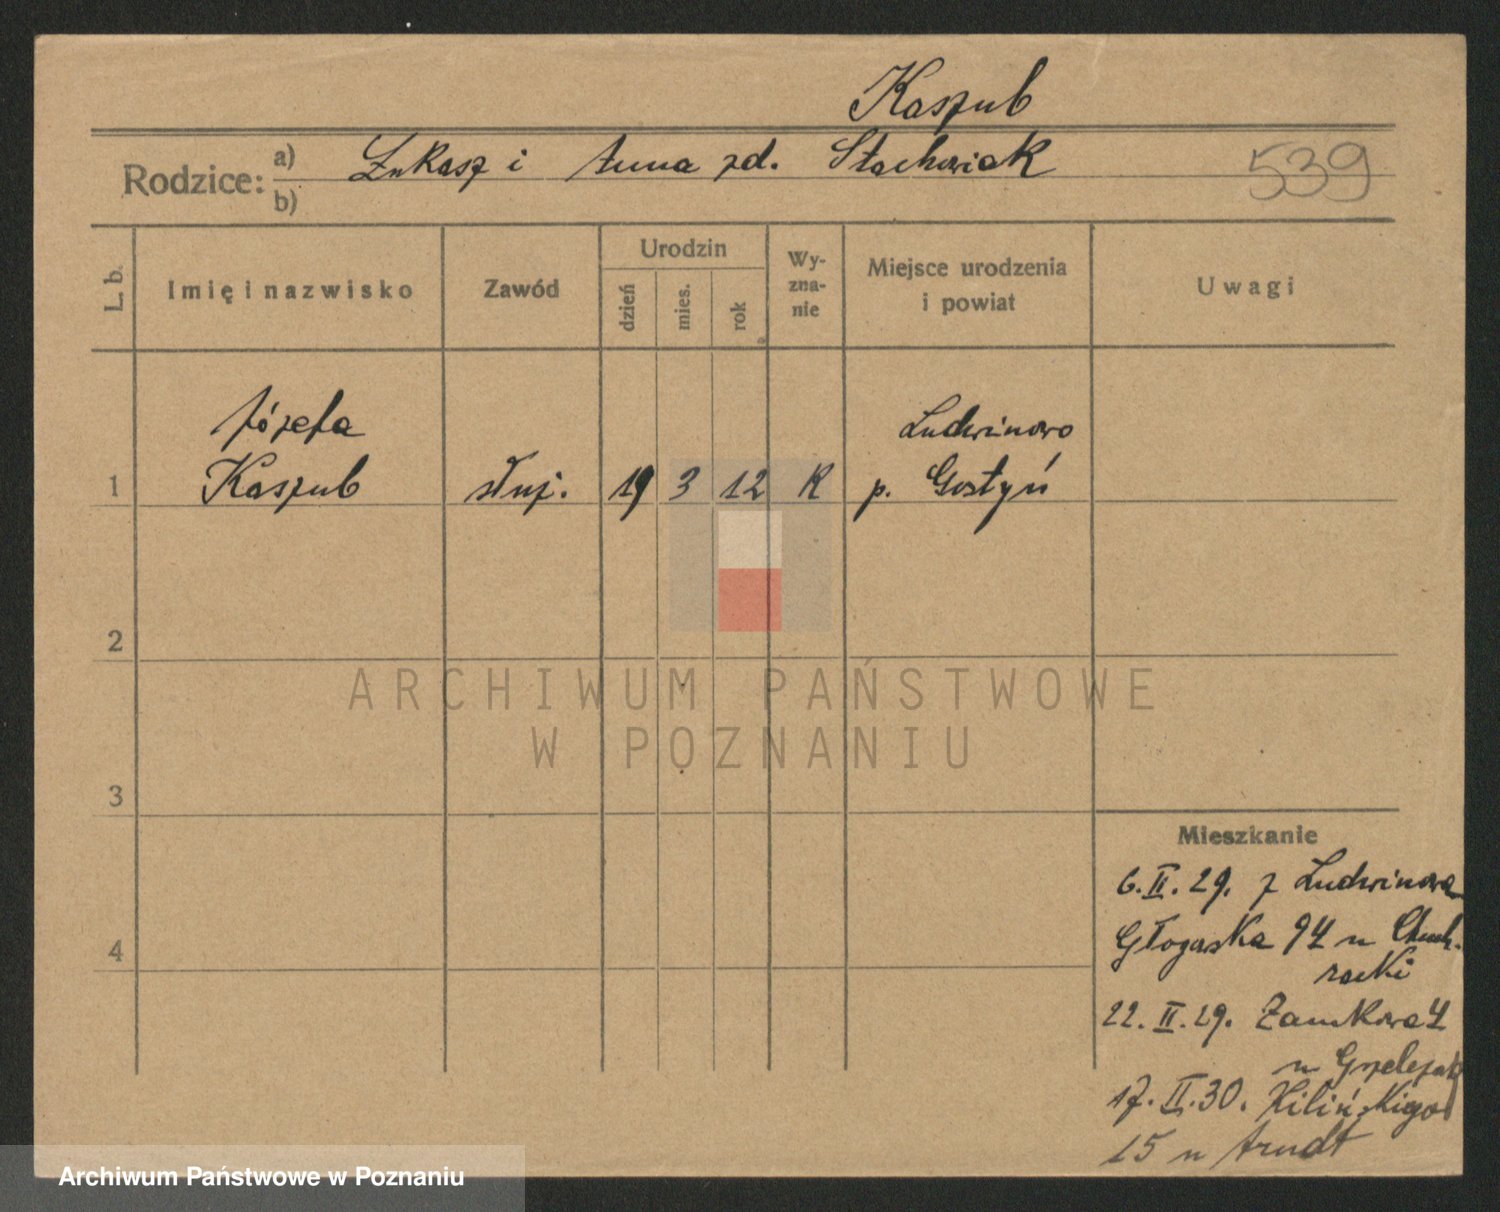 Kaszub
Rodzice: a) Łukasz i Anna zd. Stachowiak
b)
539
L. b.
Imię i nazwisko
Zawód
Urodzin
dzień
mies.
rok
Wy-
zna-
nie
Miejsce urodzenia
i powiat
Uwagi
Józefa
Kaszub
1
służ.
19
3
12
K
Ludwinowo
p. Gostyń
2
ARCHIWUM PAŃSTWOWE
W POZNANIU
3
4
Mieszkanie
6.II.29. z Ludwinowa
Głogowska 94 u
racki
22.II.29. Zamkowa 4
u Grzelczak
17.II.30. Kilińskiego
15 u Arndt
Archiwum Państwowe w Poznaniu